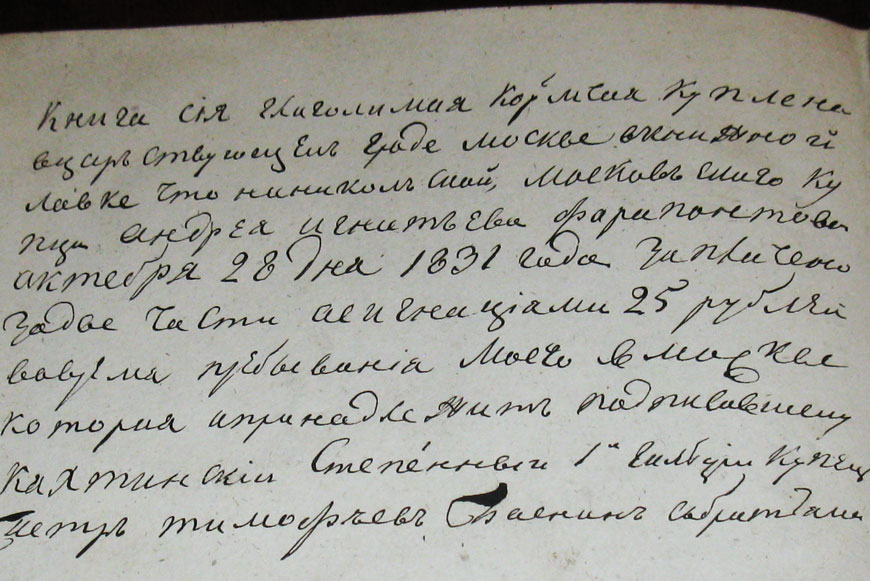 Книга сія глаголимая Кормчая Куплена
вцарствующемъ граде москве вкнижной
лавке что наникольской, московъскаго ку
пца андрея игнатъева фарапонтова
октебря 28 дня 1831 года заплачено
задве части асигнаціами 25 рублей
вовремя пребыванія моего в москве
которая ипринадлежитъ подписавшему
кахтинскій Степенный 1й гилъдіи купецъ
петръ тимофѣевъ собратьями